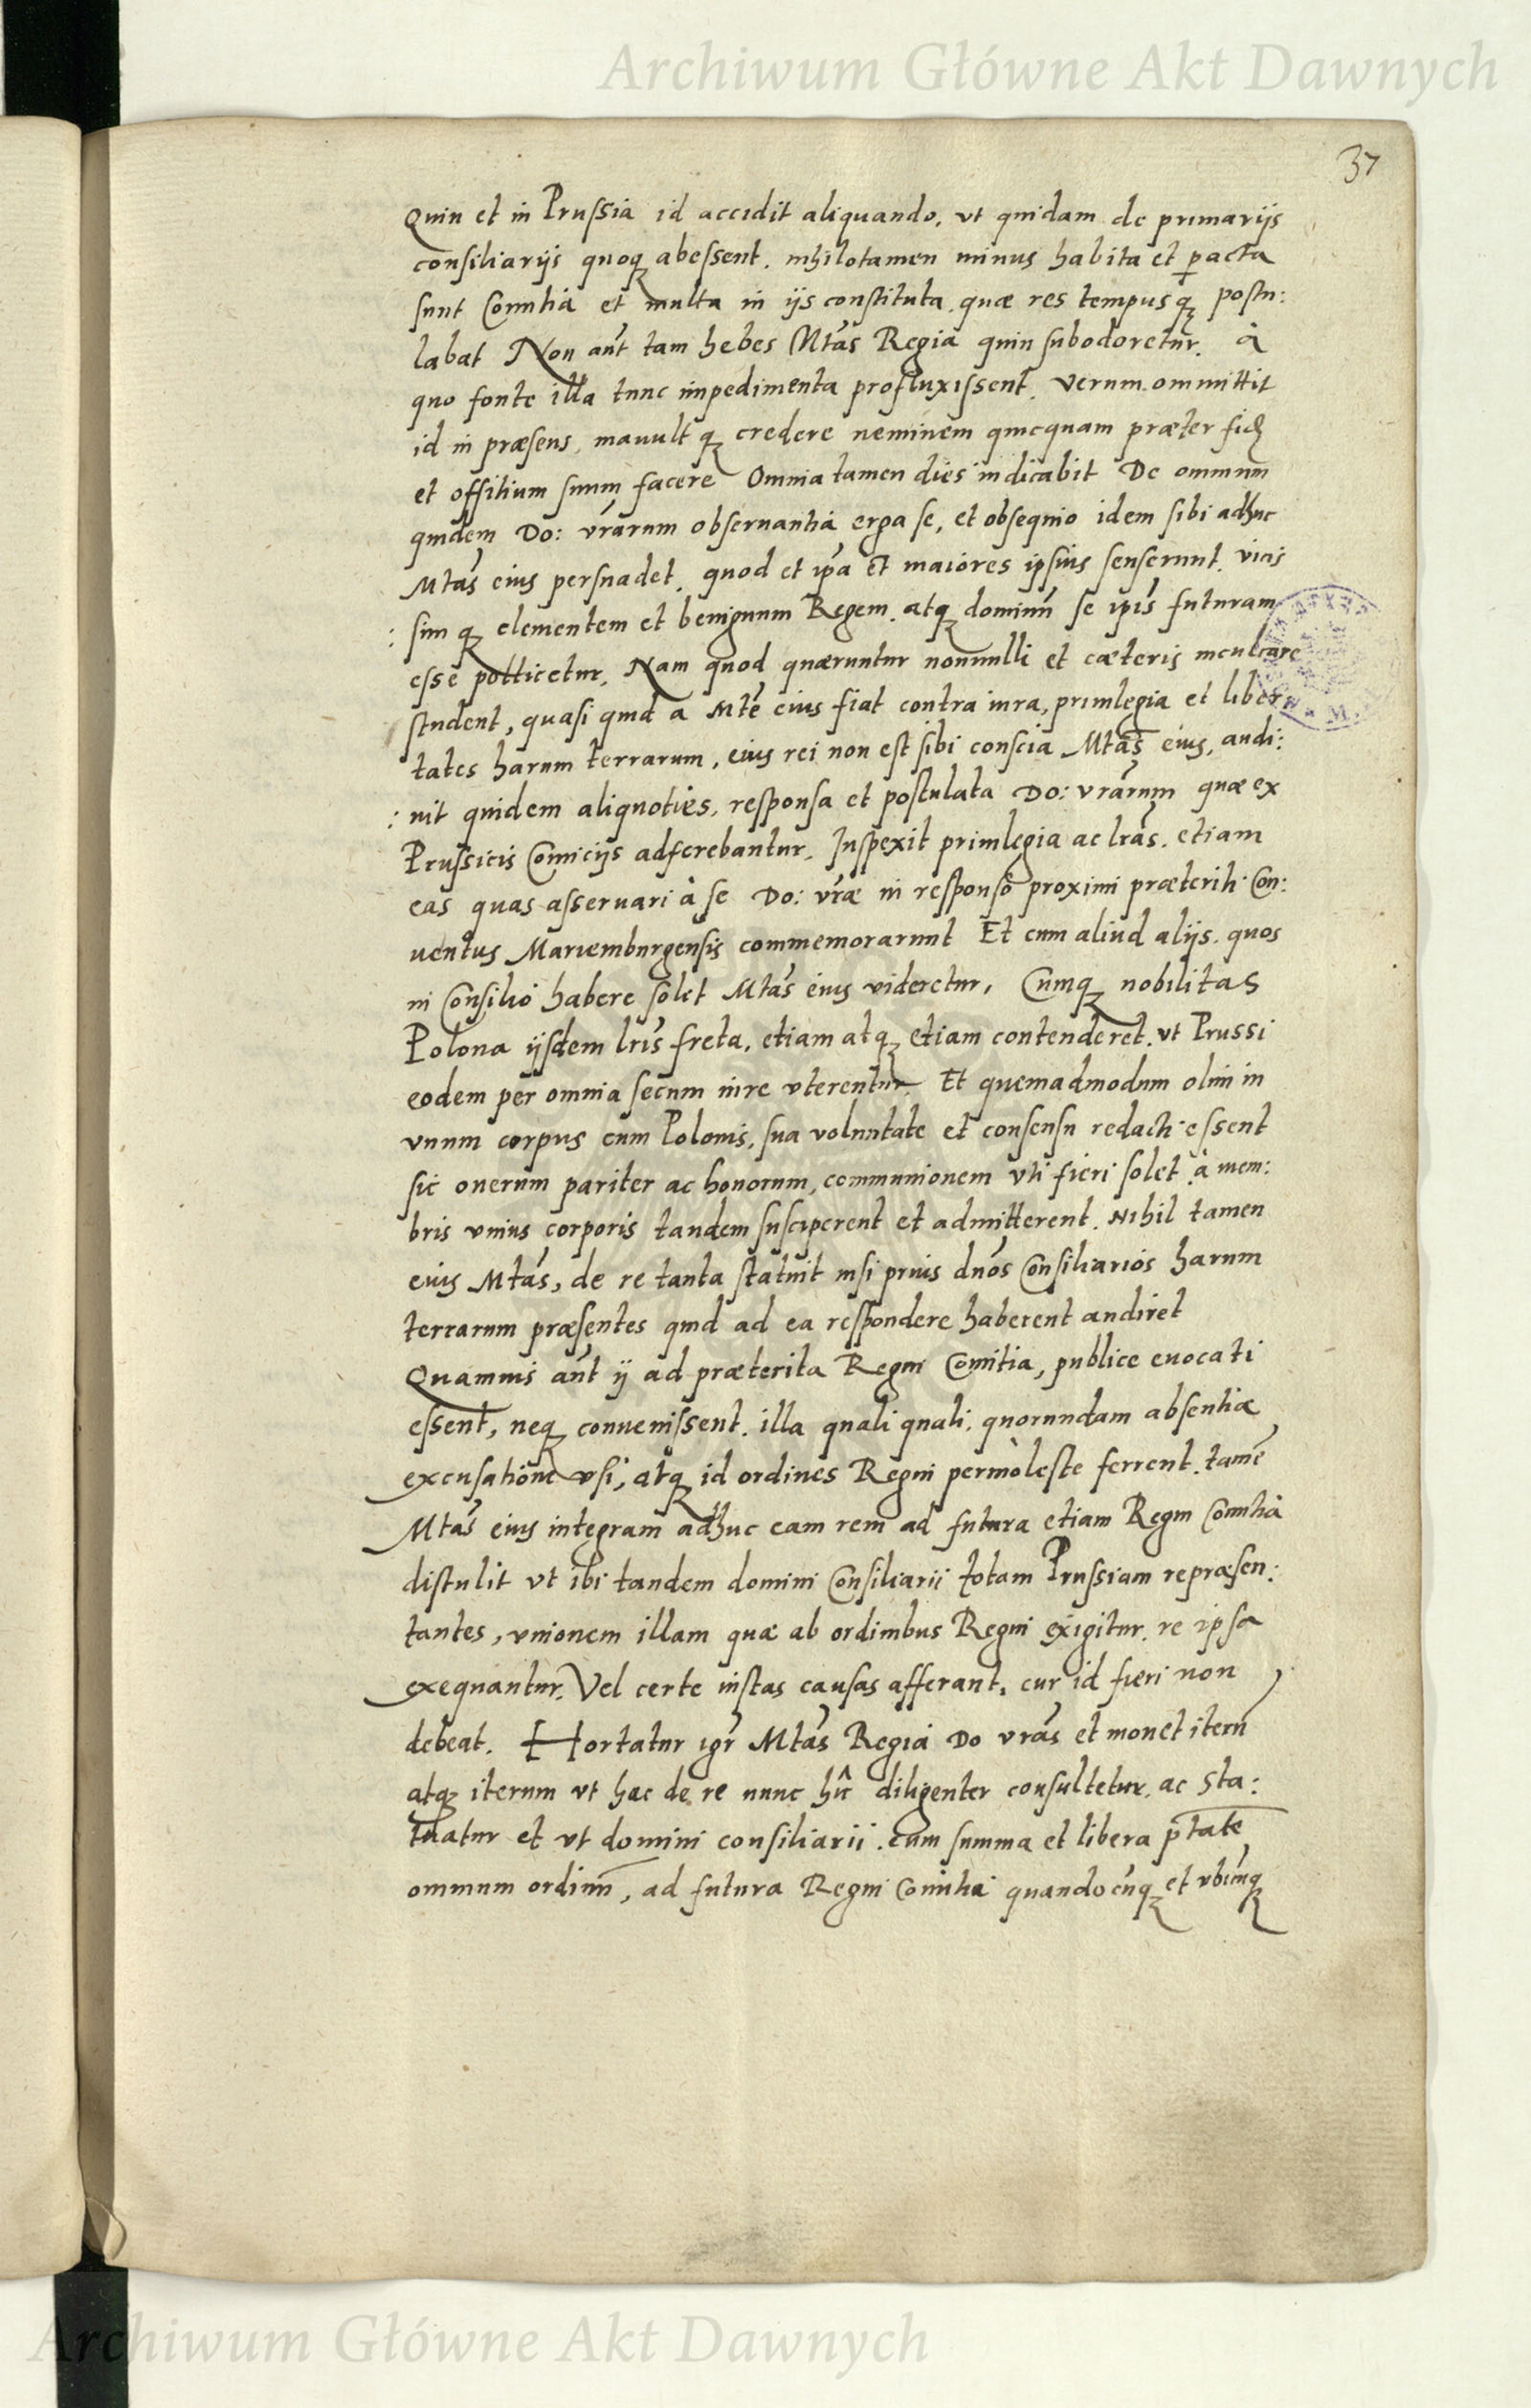 Archiwum Główne Akt Dawnych
37
Quin et in Prussia id accidit aliquando, vt quidam de primarijs
consiliarijs quoq abessent. nihilotamen minus habita et pacta
sunt Comitia et multa in ijs constituta, quæ res tempusq postu:
labat Non aut tam hebes Mtas Regia quin subodoretur. à
quo fonte illa tunc impedimenta profluxissent. Verum ommittit
id in præsens, mauult q credere neminem quicquam præter fid
et offitium suum facere Omnia tamen dies indicabit De omnium
quidem Do: vrarum obseruantia erga se, et obsequio idem sibi adhuc
Mtas eius persuadet. quod et ipa et maiores ipsius senserunt. vicis
: sim q clementem et benignum Regem. atq dominu se ipis futuram
esse pollicetur. Nam quod quæruntur nonnulli et cæteris inculcare
student, quasi quid a Mte eius fiat contra iura, priuilegia et liber
tates harum terrarum, eius rei non est sibi conscia Mtas eius, audi:
: uit quidem aliquoties, responsa et postulata Do: vrarum quæ ex
Prussicis Comicijs adferebantur. Inspexit priuilegia ac lras. etiam
eas quas asseruari à se Do: vræ in responso proximi præteriti Con:
uentus Mariemburgensis commemorarunt Et cum aliud alijs. quos
in Consilio habere solet Mtas eius videretur, Cumq nobilitas
Polona ijsdem lris freta, etiam atq etiam contenderet. vt Prussi
eodem per omnia secum iure vterentur. Et quemadmodum olim in
vnum corpus cum Polonis, sua voluntate et consensu redacti essent
sic onerum pariter ac honorum, communionem vti fieri solet à mem:
bris vnius corporis tandem susciperent et admitterent. Nihil tamen
eius Mtas, de re tanta statuit nisi prius dnos Consiliarios harum
terrarum præsentes quid ad ea respondere haberent audiret
Quamuis aut ij ad præterita Regni Comitia, publice euocati
essent, neq conuenissent. illa quali quali. quorundam absentiæ
excusatione vsi, atq id ordines Regni permoleste ferrent. tame
Mtas eius integram adhuc eam rem ad futura etiam Regni Comitia
distulit vt ibi tandem domini Consiliarii totam Prussiam repræsen:
tantes, vnionem illam quæ ab ordinibus Regni exigitur. re ipsa
exequantur. Vel certe iustas causas afferant, cur id fieri non
debeat. Hortatur igr Mtas Regia Do vras et monet iteru
atq iterum vt hac de re nunc hic diligenter consultetur, ac sta:
tuatur et vt domini consiliarii. cum summa et libera ptate
omnium ordinu, ad futura Regni Comitia quandocunq et vbicunq
Archiwum Główne Akt Dawnych